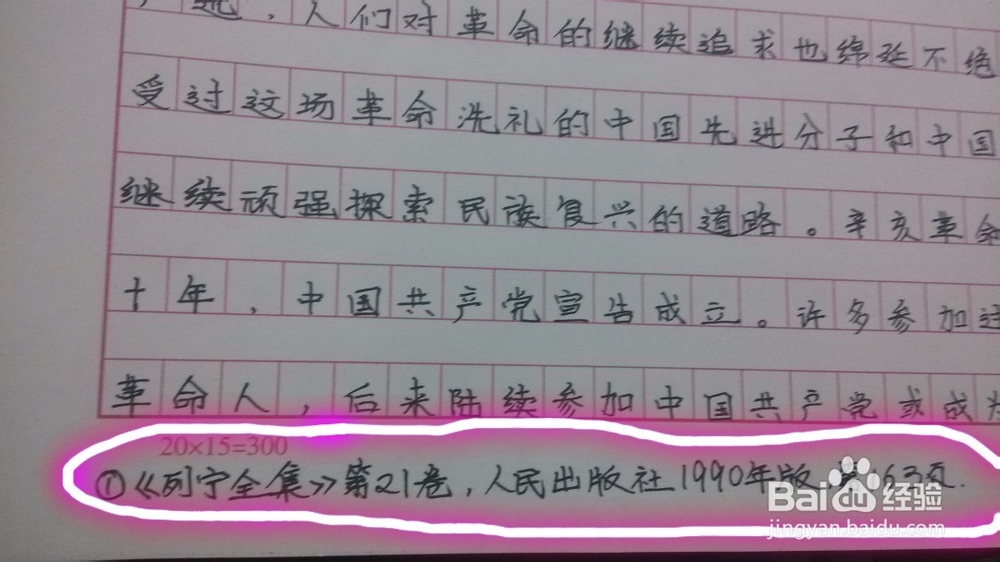 人们对革命的继续追求也绵延不绝
受过这场革命洗礼的中国先进分子和中国
继续顽强探索民族复兴的道路。辛亥革命
十年，中国共产党宣告成立。许多参加过
革命人，后来陆续参加中国共产党或成为
20×15=300
①《列宁全集》第21卷，人民出版社1990年版 163页.
Baidu经验
jingyan.baidu.com